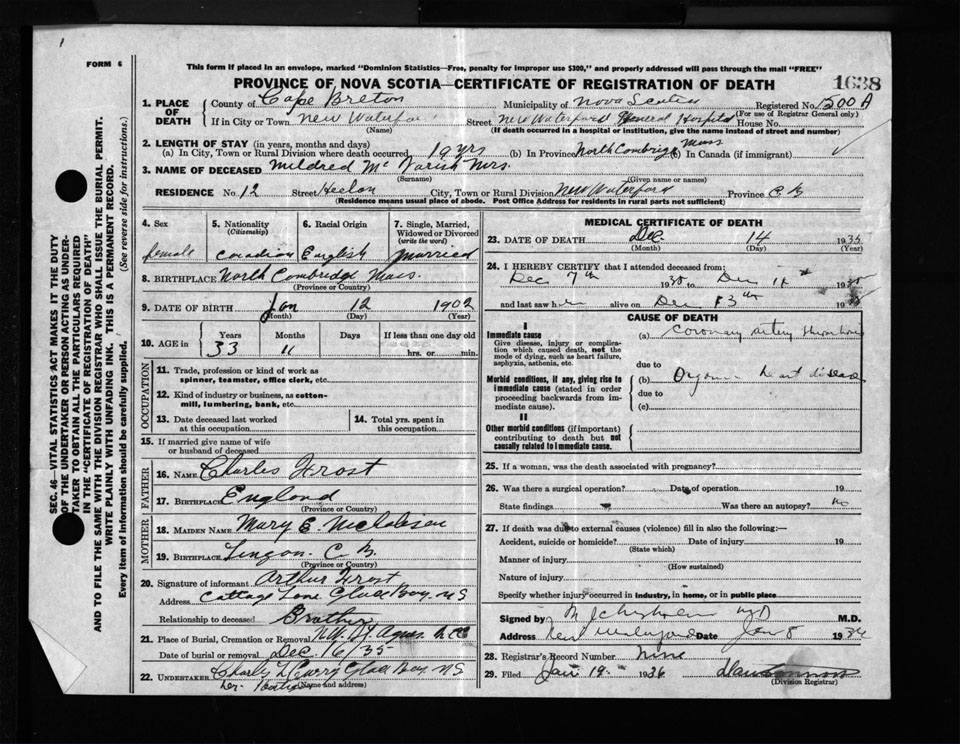 1
FORM 6
This form if placed in an envelope, marked "Dominion Statistics—Free, penalty for improper use $300," and properly addressed will pass through the mail "FREE"
PROVINCE OF NOVA SCOTIA—CERTIFICATE OF REGISTRATION OF DEATH
1638
1. PLACE OF DEATH
County of Cape Breton Municipality of Nova Scotia Registered No. 1200 A
(For use of Registrar General only)
If in City or Town New Waterford Street New Waterford General Hospital House No.
(Name) (If death occurred in a hospital or institution, give the name instead of street and number)
2. LENGTH OF STAY (in years, months and days)
(a) In City, Town or Rural Division where death occurred 19 yrs (b) In Province North Cambridge Mass (c) In Canada (if immigrant)
3. NAME OF DECEASED Mildred Mc Mrs.
(Surname) (Given name or names)
RESIDENCE No. 12 Street City, Town or Rural Division New Waterford Province C B
(Residence means usual place of abode. Post Office Address for residents in rural parts not sufficient)
4. Sex
female
5. Nationality
(Citizenship)
Canadian
6. Racial Origin
English
7. Single, Married, Widowed or Divorced
(write the word)
Married
8. BIRTHPLACE North Cambridge Mass.
(Province or Country)
9. DATE OF BIRTH Jan 12 1902
(Month) (Day) (Year)
10. AGE in Years 33 Months 11 Days If less than one day old
hrs. or min.
OCCUPATION
11. Trade, profession or kind of work as spinner, teamster, office clerk, etc.
12. Kind of industry or business, as cotton-mill, lumbering, bank, etc.
13. Date deceased last worked at this occupation
14. Total yrs. spent in this occupation
15. If married give name of wife or husband of deceased
FATHER
16. NAME Charles Frost
17. BIRTHPLACE England
(Province or Country)
MOTHER
18. MAIDEN NAME Mary E. Nicholson
19. BIRTHPLACE Lingan. C. B.
(Province or Country)
20. Signature of informant Arthur Frost
Address Cottage Lane Glace Bay. N S
Relationship to deceased Brother
21. Place of Burial, Cremation or Removal St Agnes
Date of burial or removal Dec. 16/35
22. UNDERTAKER Curry Glace Bay. N S
(Name and address)
MEDICAL CERTIFICATE OF DEATH
23. DATE OF DEATH Dec 14 1935
(Month) (Day) (Year)
24. I HEREBY CERTIFY that I attended deceased from:
Dec 7th 1935 to Dec 1935
and last saw her alive on Dec 13th 193
CAUSE OF DEATH
I
Immediate cause
Give disease, injury or complication which caused death, not the mode of dying, such as heart failure, asphyxia, asthenia, etc.
(a) Coronary artery thrombosis
due to
Morbid conditions, if any, giving rise to immediate cause (stated in order proceeding backwards from immediate cause).
(b) Organic heart disease
due to
(c)
II
Other morbid conditions (if important) contributing to death but not causally related to immediate cause.
25. If a woman, was the death associated with pregnancy?
26. Was there a surgical operation? Date of operation 19
State findings Was there an autopsy? no
27. If death was due to external causes (violence) fill in also the following:—
Accident, suicide or homicide? Date of injury 19
(State which)
Manner of injury
(How sustained)
Nature of injury
Specify whether injury occurred in industry, in home, or in public place
Signed by M D M.D.
Address New Waterford Date Jan 8 1936
28. Registrar's Record Number Nine
29. Filed Jan 19 1936
(Division Registrar)
SEC. 46—VITAL STATISTICS ACT MAKES IT THE DUTY
OF THE UNDERTAKER OR PERSON ACTING AS UNDER-
TAKER TO OBTAIN ALL THE PARTICULARS REQUIRED
IN THE "CERTIFICATE OF REGISTRATION OF DEATH"
AND TO FILE THE SAME WITH THE DIVISION REGISTRAR WHO SHALL ISSUE THE BURIAL PERMIT.
WRITE PLAINLY WITH UNFADING INK. THIS IS A PERMANENT RECORD.
Every item of information should be carefully supplied. (See reverse side for instructions.)